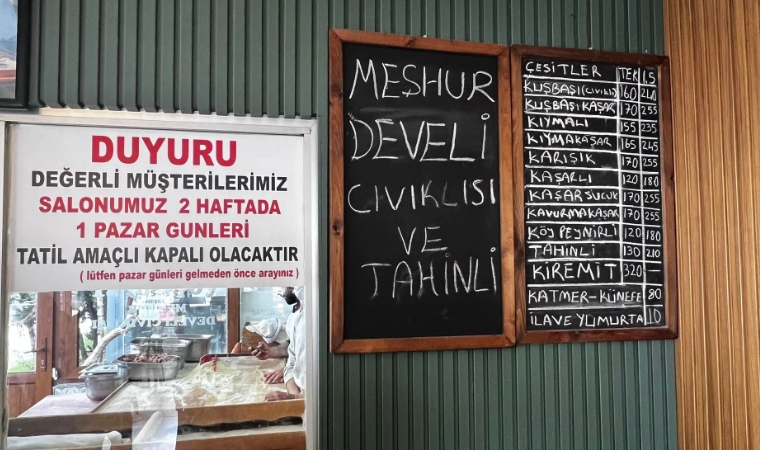 DUYURU
DEĞERLİ MÜŞTERİLERİMİZ
SALONUMUZ 2 HAFTADA
1 PAZAR GUNLERİ
TATİL AMAÇLI KAPALI OLACAKTIR
( lütfen pazar günleri gelmeden önce arayınız )
MEŞHUR
DEVELİ
CIVIKLISI
VE
TAHİNLİ
ÇEŞİTLER TEK 1,5
KUŞBAŞI (CIVIKLI) 160 240
KUŞBAŞI KAŞAR 170 255
KIYMALI 155 235
KIYMA KAŞAR 165 245
KARIŞIK 170 255
KAŞARLI 120 180
KAŞAR SUCUK 170 255
KAVURMA KAŞAR 170 255
KÖY PEYNİRLİ 120 180
TAHİNLİ 130 210
KİREMİT 320 —
KATMER-KÜNEFE 80
İLAVE YUMURTA 10